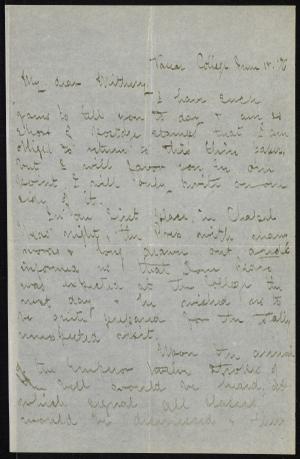 Vassar College June 15, '76
My dear Mother,
I have such
yarns to tell you to day & am so
short of postage stamps that I am
obliged to return to this thin paper,
but I will favor you in one
point & will only write on one
side of it.
In the first place, in Chapel
last night, the Pres. with many
words & long drawn out, &
informed us that Dom Pedro
was expected at the College the
next day & he wished us to
be quite prepared for the totally
unexpected visit.
Upon the arrival
of the Emperor twelve strokes of
the bell would be heard, at
which signal all classes
would be dismissed & then